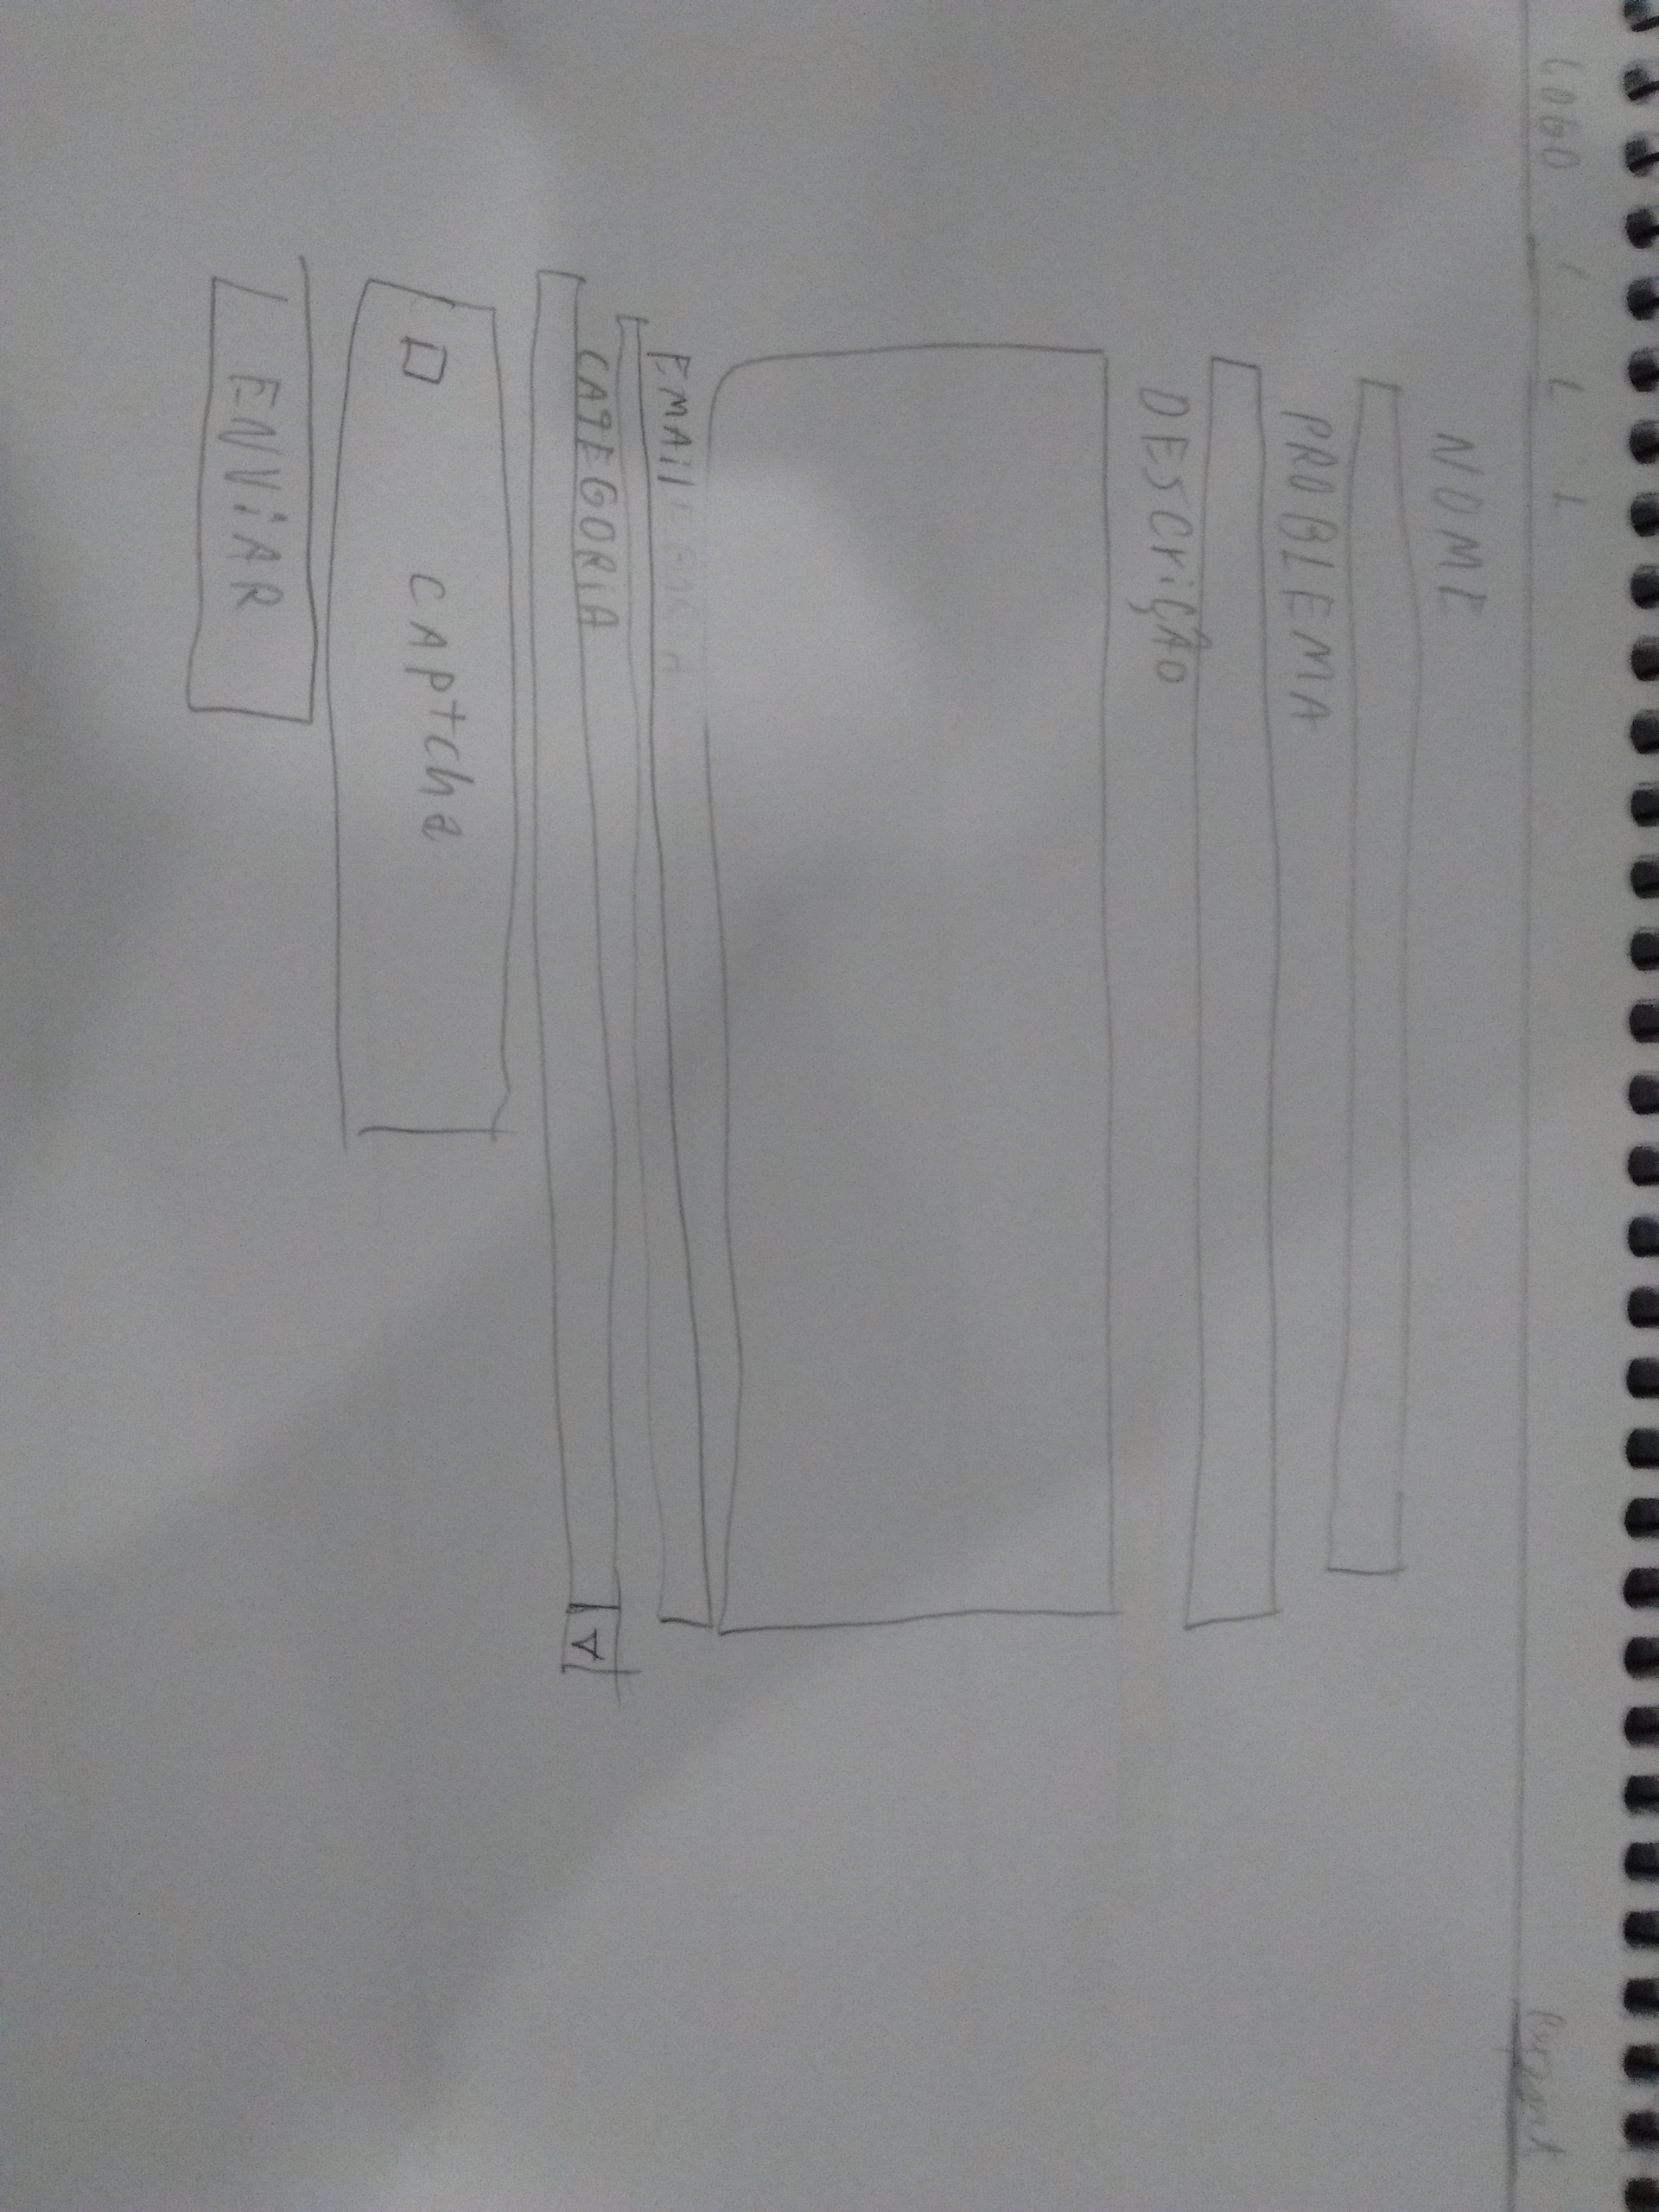 LOGO L L L
NOME
PROBLEMA
DESCriÇÃO
EMAil
CATEGORIA
CAPtcha
ENViAR